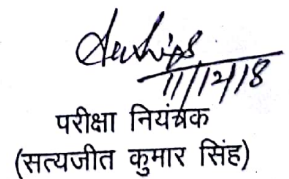 11/12/18
परीक्षा नियंत्रक
(सत्यजीत कुमार सिंह)